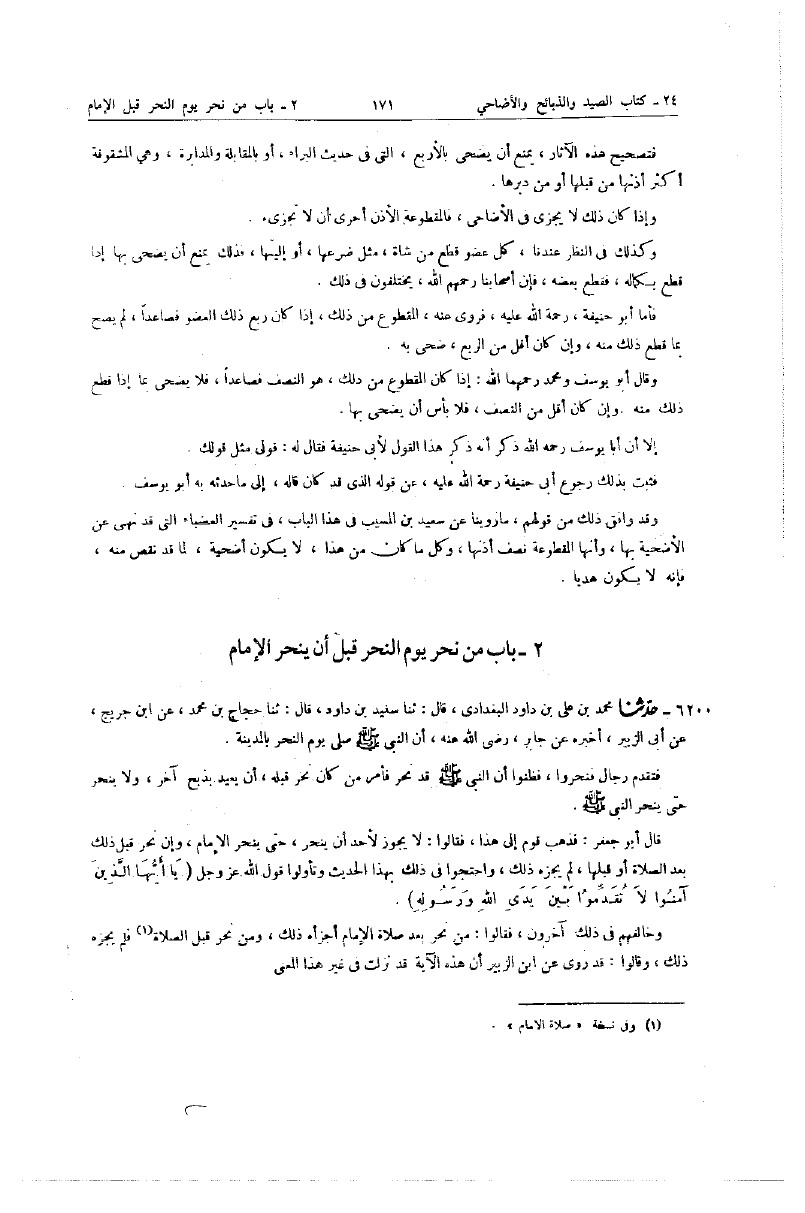 ٢٤ ـ كتاب الصيد والذبائح والأضاحي ١٧١ ٢ ـ باب من نحر يوم النحر قبل الإمام
فتصحيح هذه الآثار ، يمنع أن يضحى بالأربع ، التى فى حديث البراء ، أو بالمقابلة والمدابرة ، وهي المشقوقة
أكثر أذنها من قبلها أو من دبرها .
وإذا كان ذلك لا يجزى فى الأضاحى ، فالمقطوعة الأذن أحرى أن لا تجزىء .
وكذلك فى النظر عندنا ، كل عضو قطع من شاة ، مثل ضرعها ، أو إليتها ، فذلك يمنع أن يضحى بها إذا
قطع بكماله ، فقطع بعضه ، فإن أصحابنا رحمهم الله ، يختلفون فى ذلك .
فأما أبو حنيفة ، رحمة الله عليه ، فروى عنه ، المقطوع من ذلك ، إذا كان ربع ذلك العضو فصاعداً ، لم يصح
بما قطع ذلك منه ، وإن كان أقل من الربع ، ضحى به .
وقال أبو يوسف ومحمد رحمهما الله : إذا كان المقطوع من دلك ، هو النصف فصاعداً ، فلا يضحى بما إذا قطع
ذلك منه .وإن كان أقل من النصف ، فلا بأس أن يضحى بها .
إلا أن أبا يوسف رحمه الله ذكر أنه ذكر هذا القول لأبى حنيفة فقال له : قولى مثل قولك .
فثبت بذلك رجوع أبى حنيفة رحمة الله عليه ، عن قوله الذى قد كان قاله ، إلى ماحدثه به أبو يوسف .
وقد وافق ذلك من قولهم ، ماروينا عن سعيد بن المسيب فى هذا الباب ، فى تفسير العضباء التى قد نهى عن
الأضحية بها ، وأنها المقطوعة نصف أذنها ، وكل ما كان من هذا ، لا يكون أضحية ، لما قد نقص منه ،
فإنه لا يكون هديا .
٢ ـ باب من نحر يوم النحر قبل أن ينحر الإمام
٦٢٠٠ ـ حدثنا محمد بن على بن داود البغدادى ، قال : ثنا سنيد بن داود ، قال : ثنا حجاج بن محمد ، عن ابن جريج ،
عن أبى الزبير ، أخبره عن جابر ، رضى الله عنه ، أن النبى ﷺ صلى يوم النحر بالمدينة .
فتقدم رجال فنحروا ، فظنوا أن النبى ﷺ قد نحر فأمر من كان نحر قبله ، أن يعيد بذبح آخر ، ولا ينحر
حتى ينحر النبى ﷺ .
قال أبو جعفر : فذهب قوم إلى هذا ، فقالوا : لا يجوز لأحد أن ينحر ، حتى ينحر الإمام ، وإن نحر قبل ذلك
بعد الصلاة أو قبلها ، لم يجزه ذلك ، واحتجوا فى ذلك بهذا الحديث وتأولوا قول الله عز وجل ( يَا أَيُّهَا الَّذِينَ
آمَنُوا لَا تُقَدِّمُوا بَيْنَ يَدَىِ اللهِ وَرَسُولِهِ) .
وخالفهم فى ذلك آخرون ، فقالوا : من نحر بعد صلاة الإمام أجزأه ذلك ، ومن نحر قبل الصلاة(١) فلم يجزه
ذلك ، وقالوا : قد روى عن ابن الزبير أن هذه الآية قد نزلت فى غير هذا المعنى
(١) وفى نسخة « صلاة الامام » .